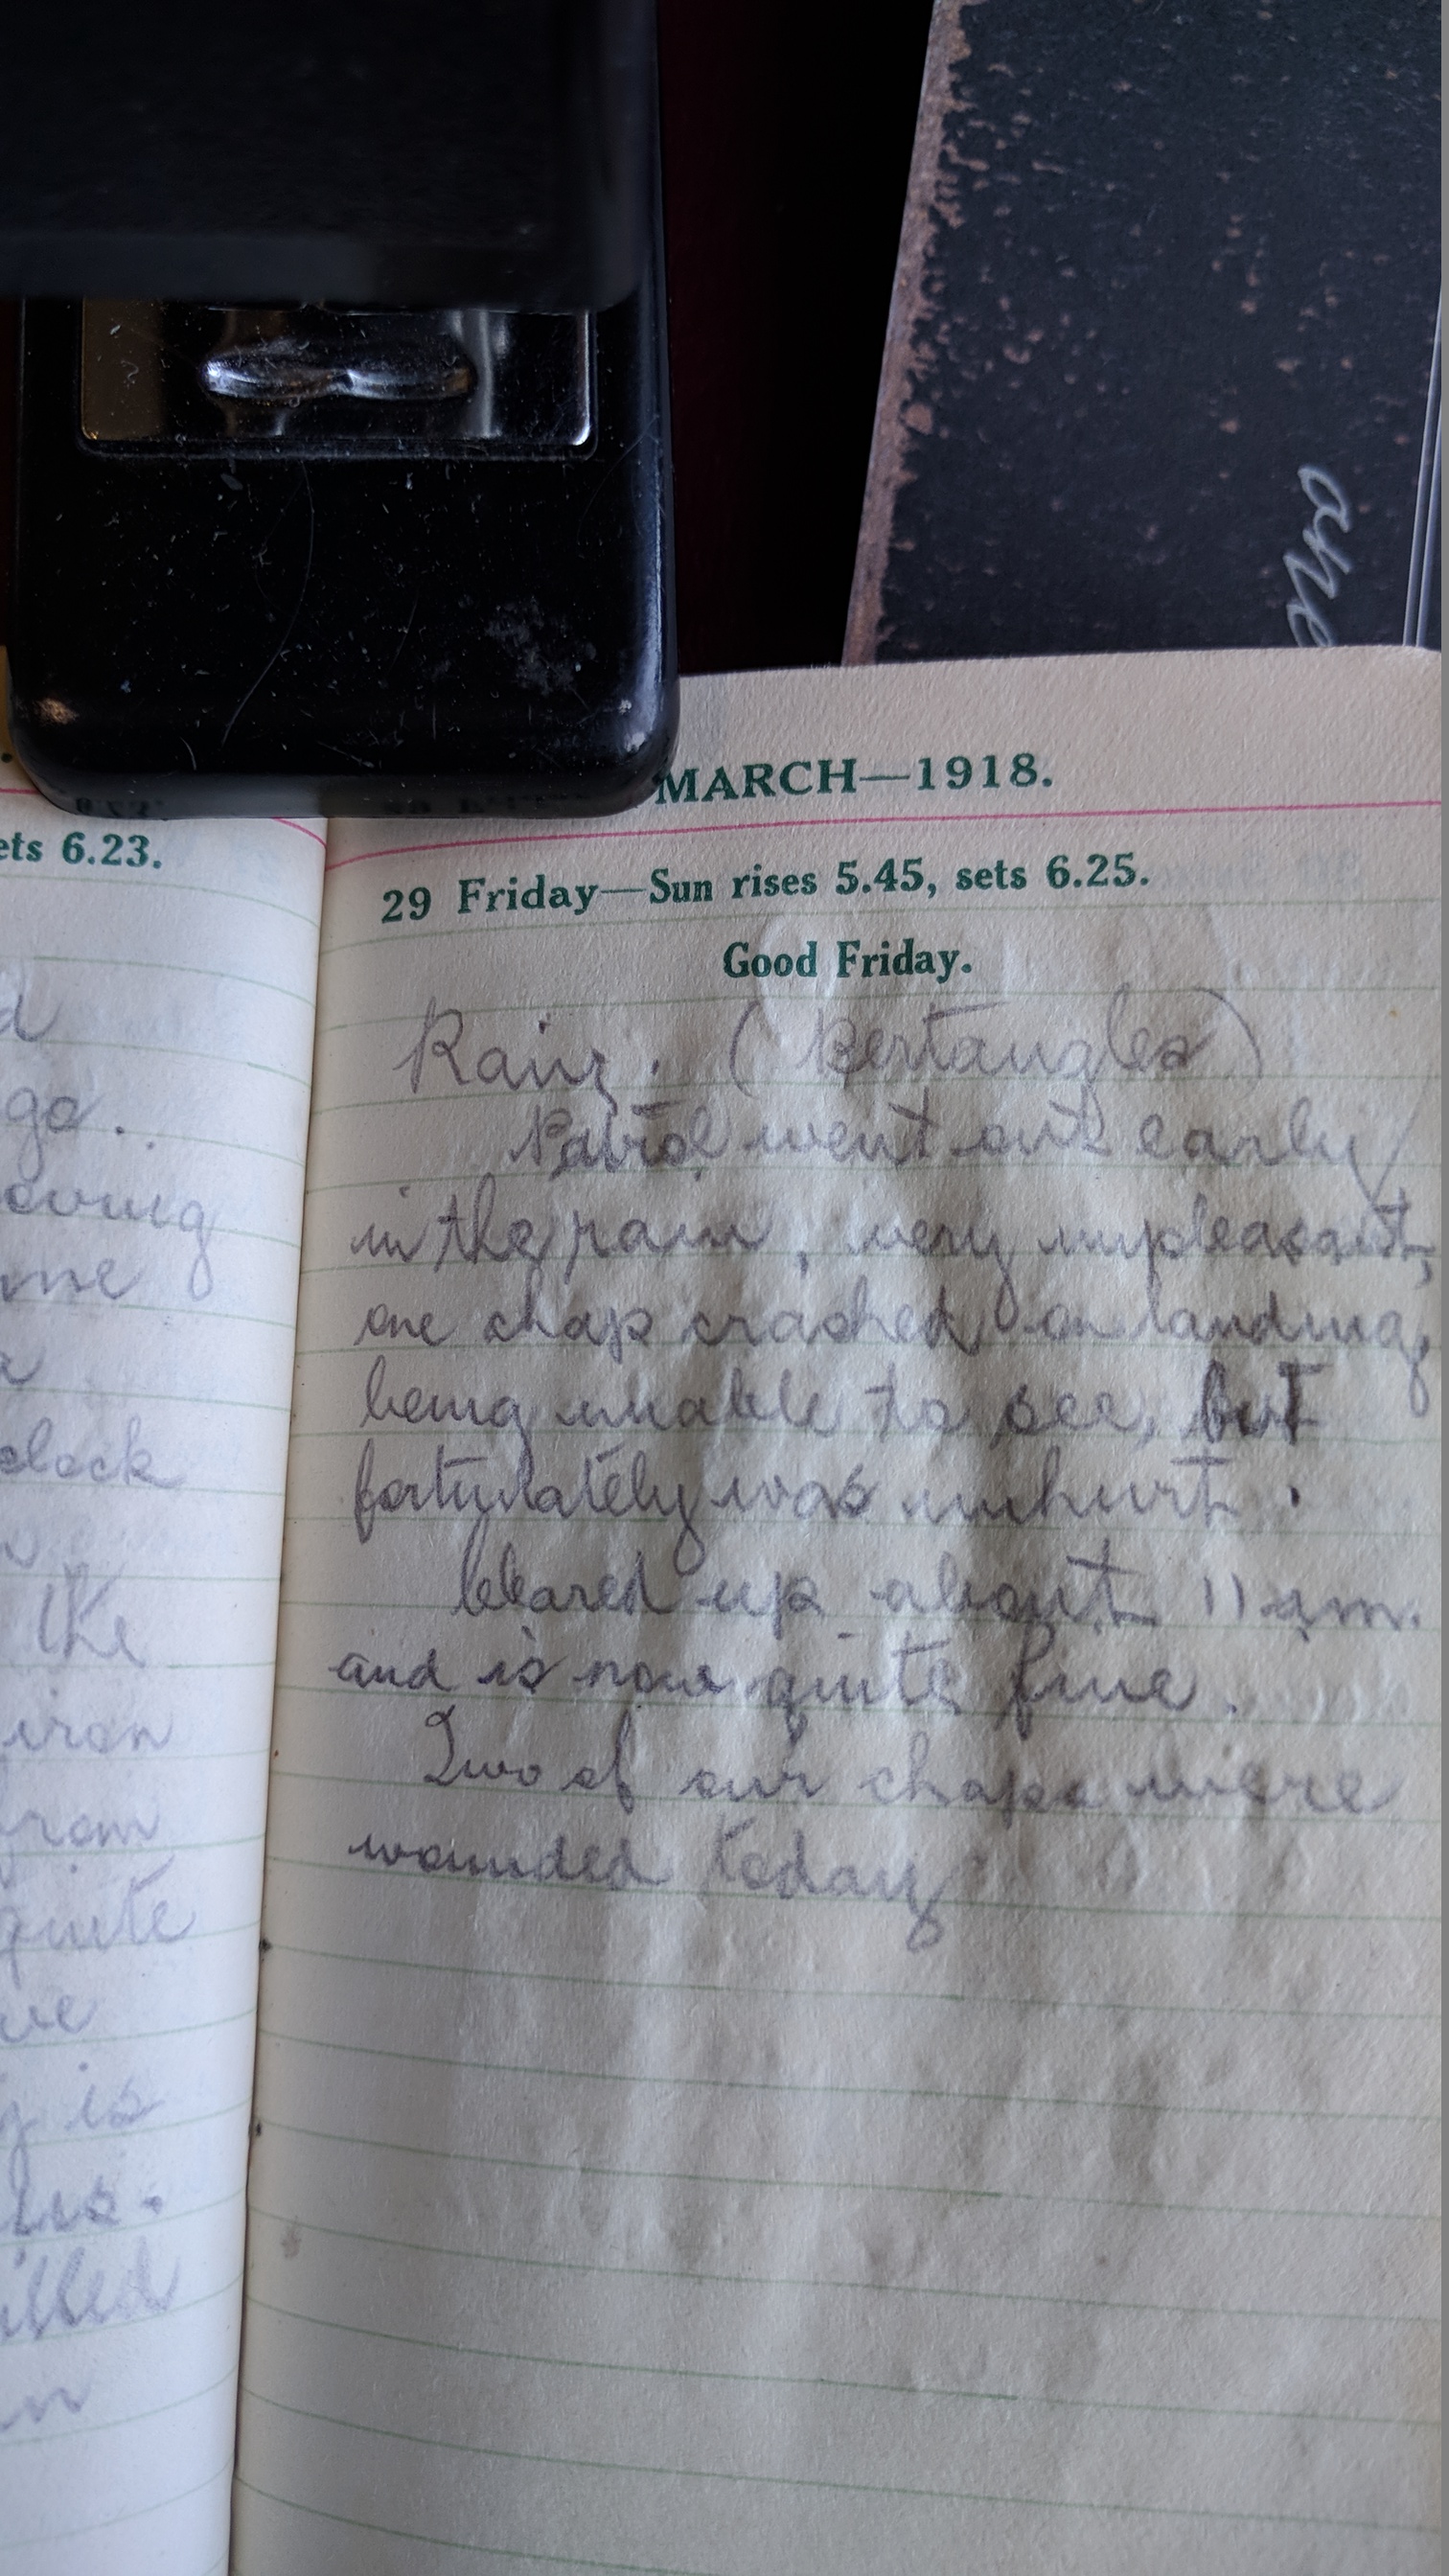 one
MARCH—1918.
ets 6.23.
29 Friday—Sun rises 5.45, sets 6.25.
Good Friday.
Rainy. (Bertangles)
Patrol went out early
in the rain, very unpleasant,
one chap crashed on landing,
being unable to see, but
fortunately was unhurt.
Cleared up about 11 am.
and is now quite fine.
Two of our chaps were
wounded today
d
go..
me
clock
the
iron
from
quite
ve
is